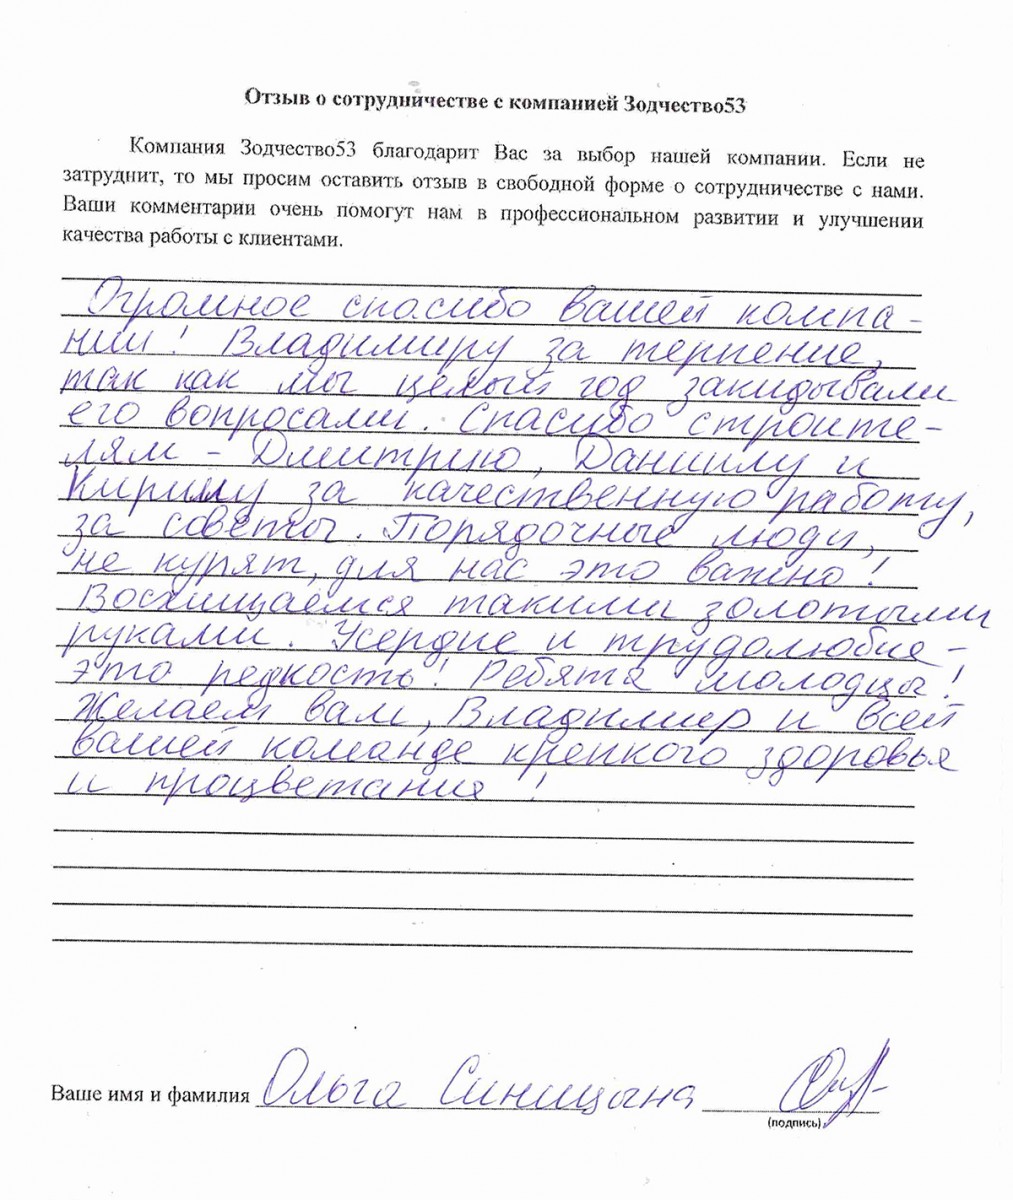 Отзыв о сотрудничестве с компанией Зодчество53
Компания Зодчество53 благодарит Вас за выбор нашей компании. Если не
затруднит, то мы просим оставить отзыв в свободной форме о сотрудничестве с нами.
Ваши комментарии очень помогут нам в профессиональном развитии и улучшении
качества работы с клиентами.
Огромное спасибо вашей компа-
нии! Владимиру за терпение,
так как мы целый год закидывали
его вопросами. Спасибо строите-
лям - Дмитрию, Даниилу и
Кириллу за качественную работу,
за советы. Порядочные люди,
не курят, для нас это важно!
Восхищаемся такими золотыми
руками. Усердие и трудолюбие -
это редкость! Ребята молодцы!
Желаем вам, Владимир и всей
вашей команде крепкого здоровья
и процветания!
Ваше имя и фамилия Ольга Синицына
(подпись)